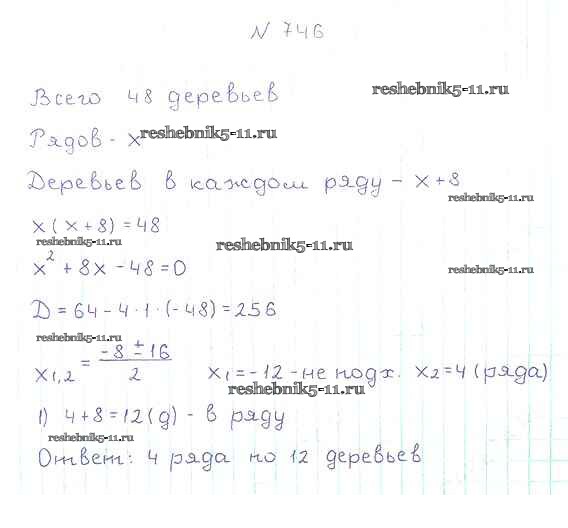 N 746
Всего 48 деревьев
reshebnik5-11.ru
Рядов - x
reshebnik5-11.ru
Деревьев в каждом ряду – x+8
reshebnik5-11.ru
x(x+8)=48
reshebnik5-11.ru
reshebnik5-11.ru
x²+8x-48=0
reshebnik5-11.ru
D=64-4·1·(-48)=256
reshebnik5-11.ru
x1,2 = (-8±16)/2 x1=-12-не подх. x2=4(ряда)
reshebnik5-11.ru
1) 4+8=12(д) - в ряду
reshebnik5-11.ru
Ответ: 4 ряда по 12 деревьев